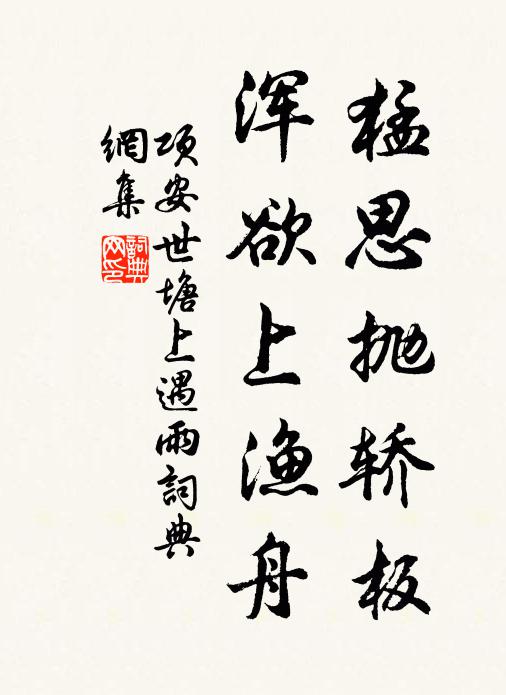 猛思抛轿板
浑欲上渔舟
项安世塘上遇雨詞典
網集
詞典
网印